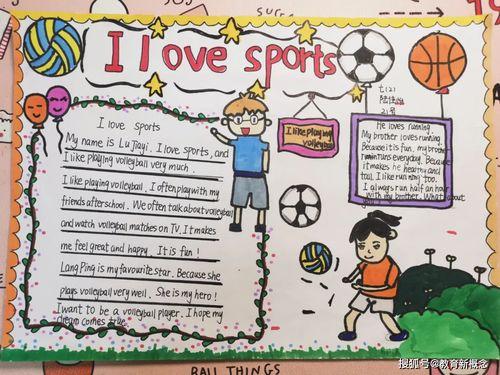 I love sports
I love sports
My name is Lu Jiayi. I love sports, and
I like playing volleyball very much.
I like playing volleyball. I often play with my
friends after school. We often talk about volleyball
and watch volleyball matches on TV. It makes
me feel great and happy. It is fun!
Lang Ping is my favourite star. Because she
plays volleyball very well. She is my hero!
I want to be a volleyball player. I hope my
dream comes true.
I like playing
volleyball
七(2)
He loves running
My brother loves running.
Because it is fun. my brother
runs everyday. Because
it makes he hearthy and
tall. I like running too.
I always run half an hour
with my brother. What about
BALL THINGS
搜狐号@教育新概念